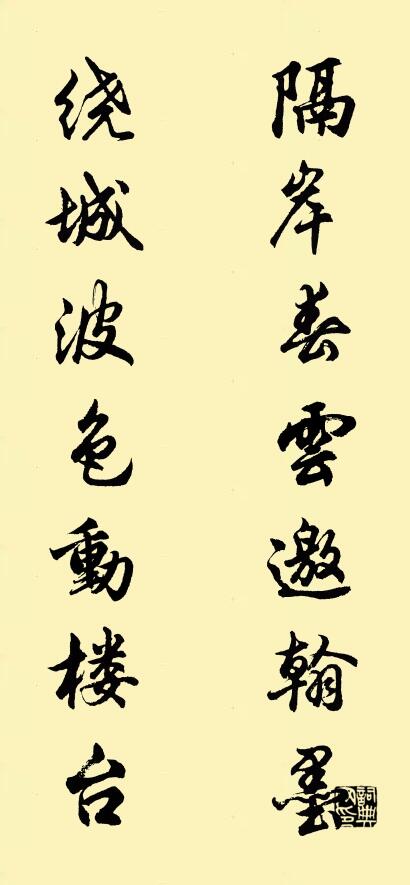 隔岸春雲邀翰墨
绕城波色動楼台